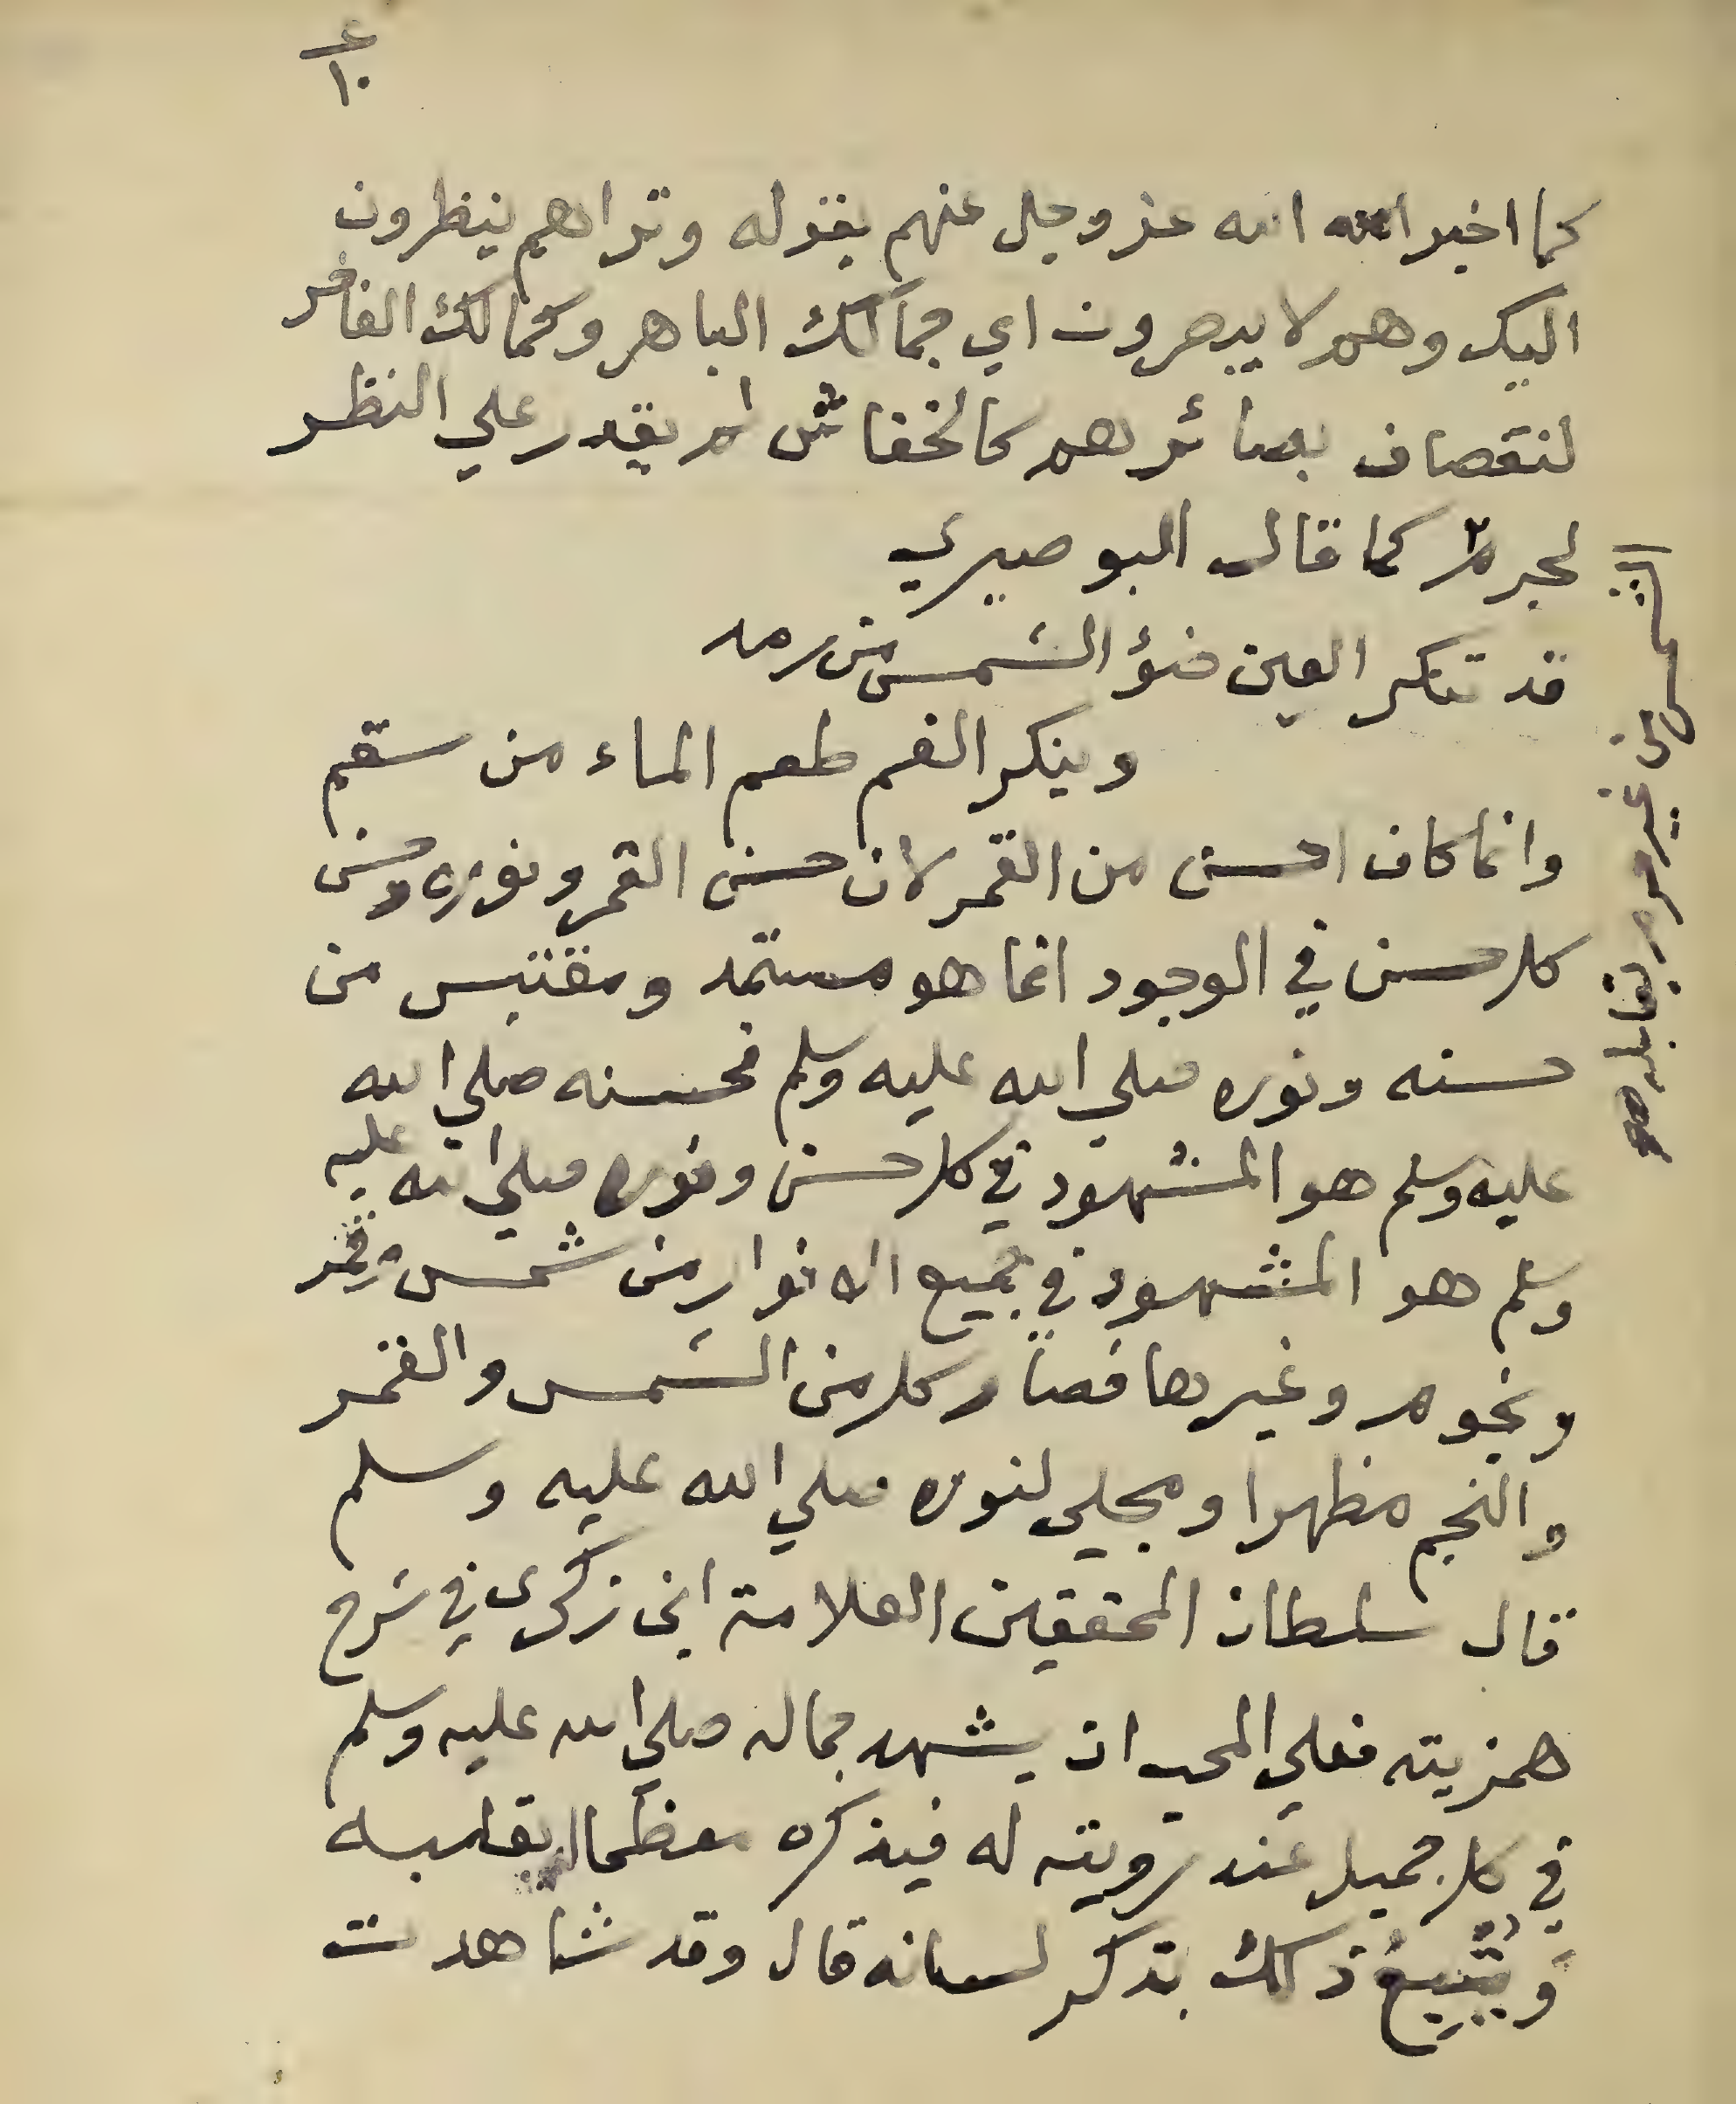 ع
١٠
كما اخبر الله عز وجل عنهم بقوله وتراهم ينظرون
اليك وهم لا يبصرون اي جمالك الباهر وكمالك الفاخر
لنقصان بصائرهم كالخفاش لم يقدر علي النظر
لجرم كما قال البوصيري
قد تنكر العين ضؤ الشمس من رمد
وينكر الفم طعم الماء من سقم
وانما كان احسن من القمر لان حسن القمر ونوره وحسن
كل حسن في الوجود انما هو مستمد ومقتبس من
حسنه ونوره صلي الله عليه وسلم فحسنه صلي الله
عليه وسلم هو المشهود في كل حسن ونوره صلي الله عليه
وسلم هو المشهود في جميع الانوار من شمس وقمر
ونجوم وغيرها فصار كل من الشمس والقمر
والنجم مظهرا ومجلي لنوره صلي الله عليه وسلم
قال سلطان المحققين العلامة ابن زكرى في شرح
همزيته فعلي المحب ان يشهد جماله صلي الله عليه وسلم
في كل جميل عند رويته له فيذكره معظما بقلبه
ويتبع ذلك بذكر لسانه قال وقد شاهدت
الشمس من غير جرم يقابله صح